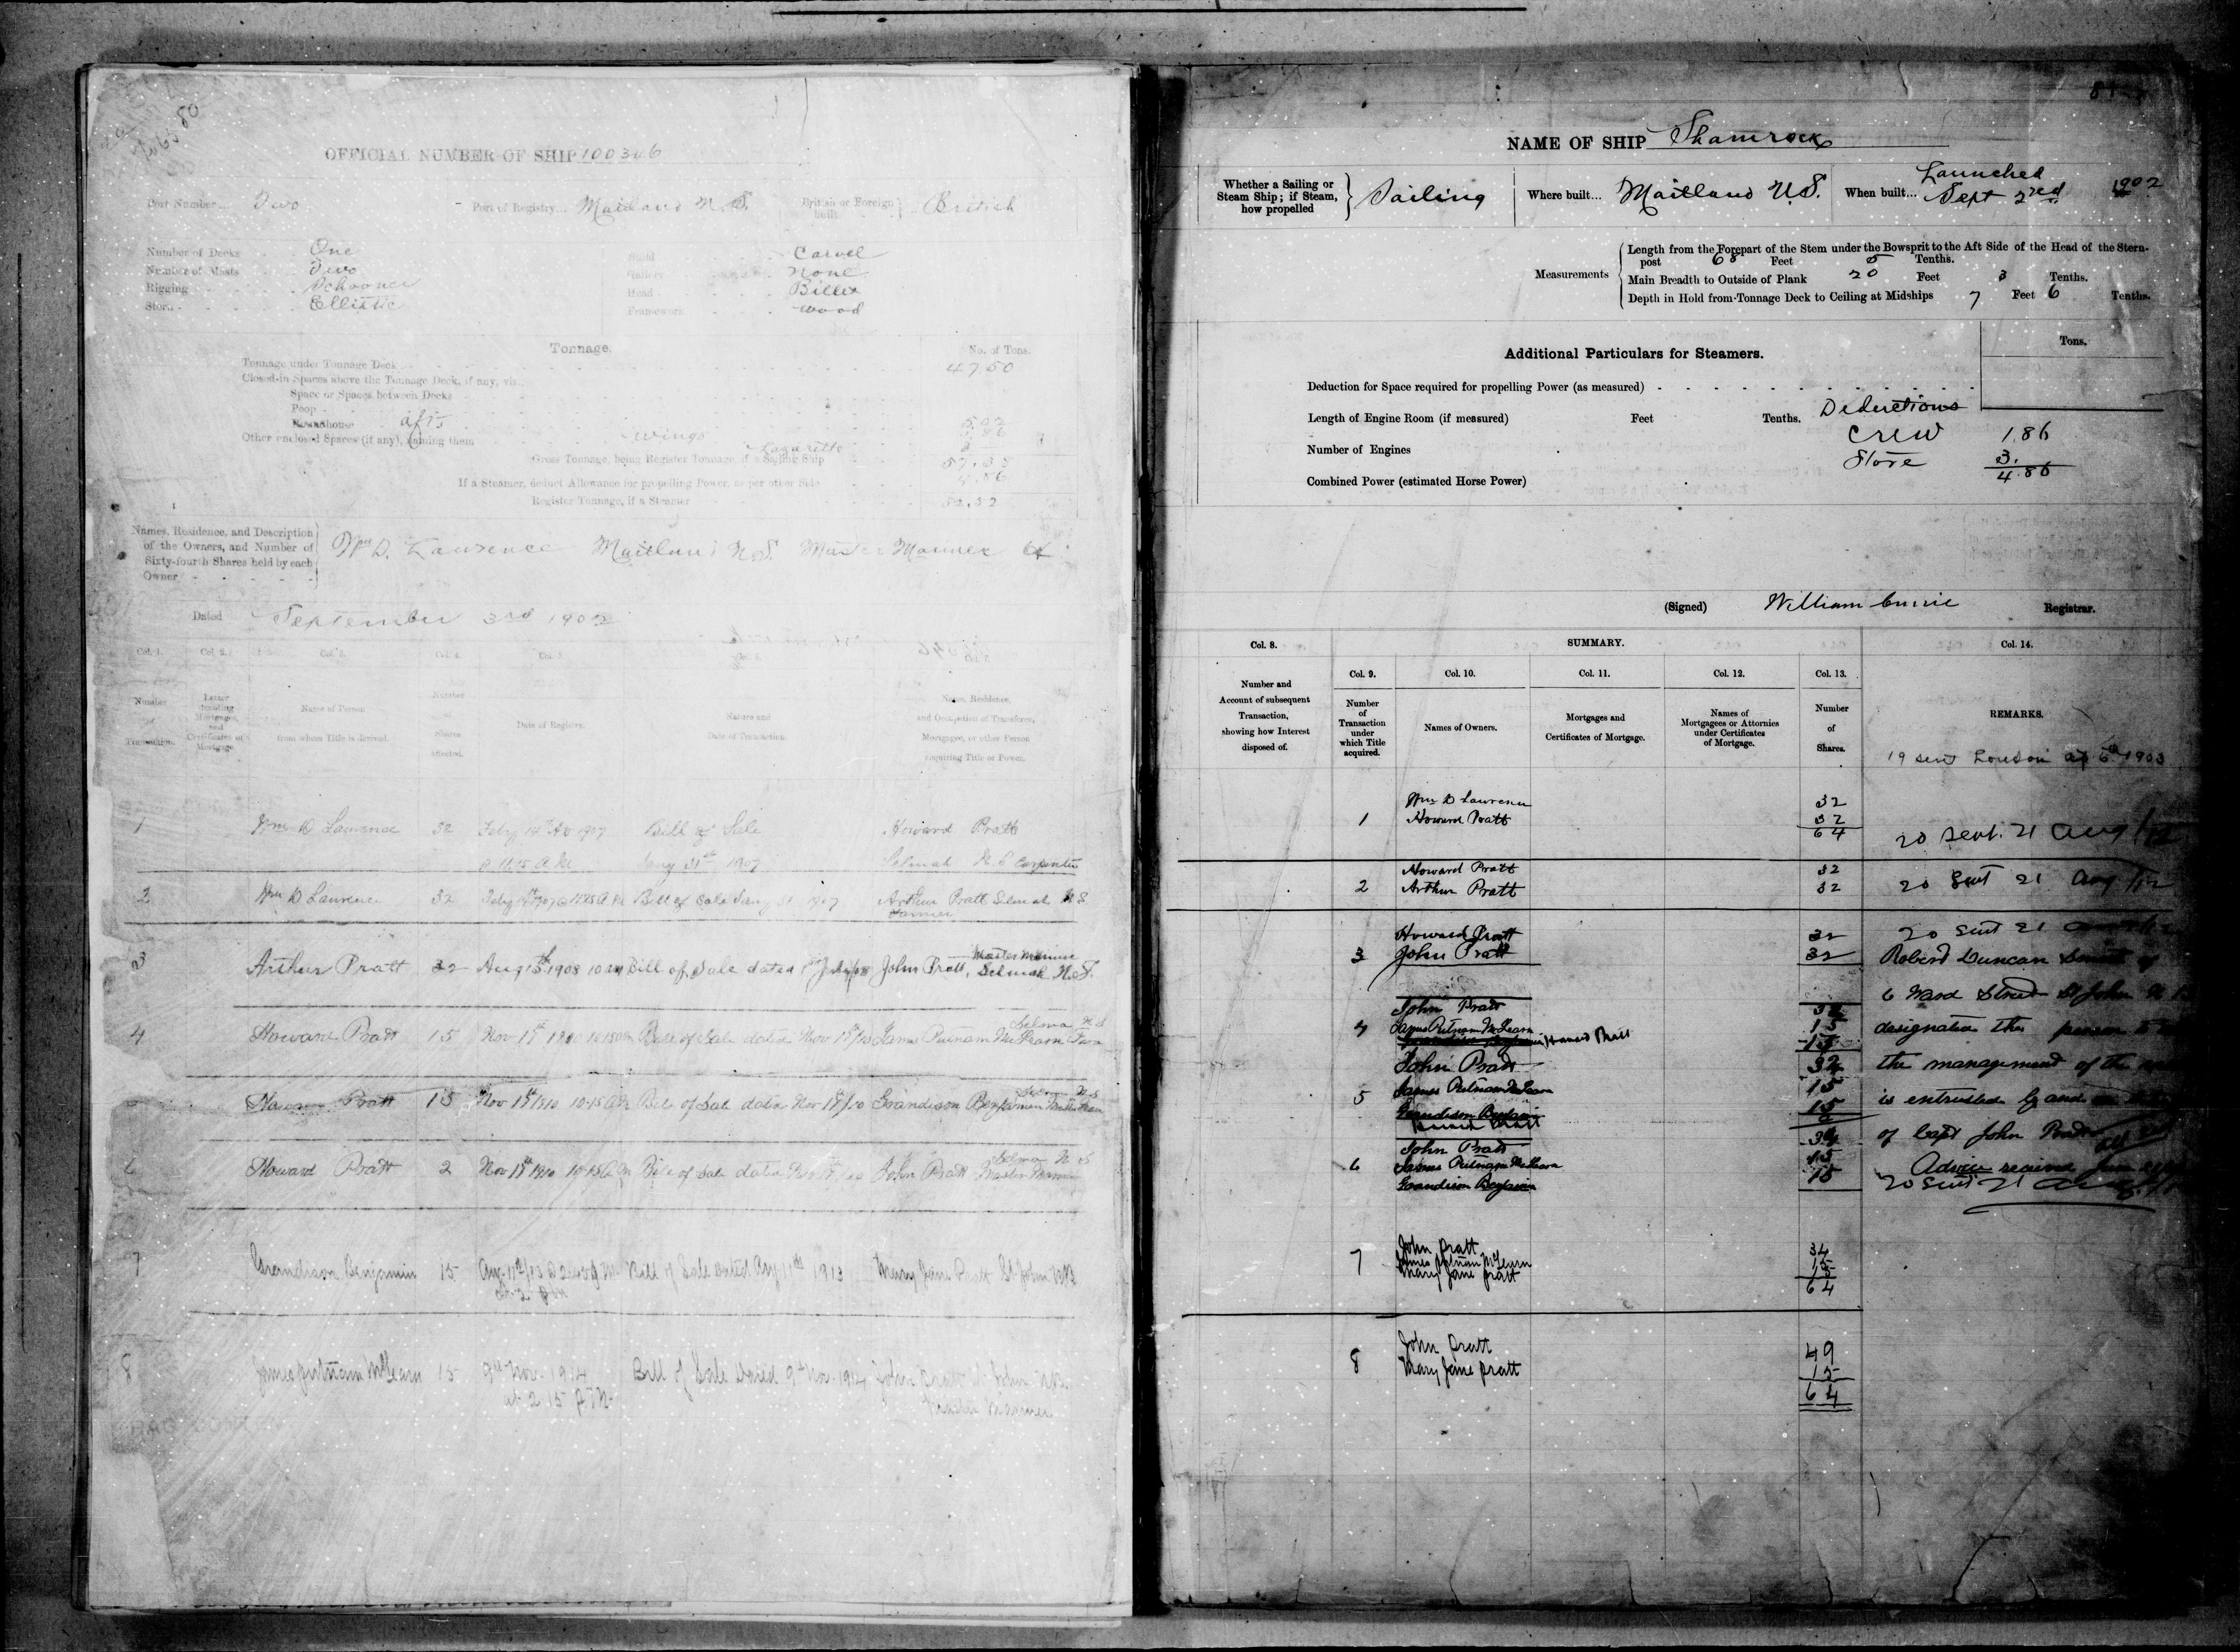 80
OFFICIAL NUMBER OF SHIP 100346
Port Number... Two
Port of Registry... Maitland N.S.
British or Foreign built } British
Number of Decks One
Number of Masts Two
Rigging Schooner
Stern Elliptic
Build Carvel
Gallery None
Head Billet
Framework wood
Tonnage.
No. of Tons.
Tonnage under Tonnage Deck 47.50
Closed-in Spaces above the Tonnage Deck, if any, viz.:
Space or Spaces between Decks
Poop
Roundhouse aft
Other enclosed Spaces (if any), naming them wings
Lazarette
Gross Tonnage, being Register Tonnage, if a Sailing Ship
If a Steamer, deduct Allowance for propelling Power, as per other Side 4.86
Register Tonnage, if a Steamer 52.52
Names, Residence, and Description
of the Owners, and Number of
Sixty-fourth Shares held by each
Owner
Wm D. Lawrence Maitland N.S. Master Mariner 64
Dated September 3rd 1902
Col. 1. Col. 2. Col. 3. Col. 4. Col. 5.
Number of Transaction.
Letter denoting Mortgages, and Certificates of Mortgage.
Name of Person from whom Title is derived.
Number of Shares affected.
Date of Registry.
Nature and Date of Transaction.
Name, Residence, and Occupation of Transferee, Mortgagee, or other Person acquiring Title or Power.
1 Wm D Lawrence 32 Feby 14th 1907 Bill of Sale Howard Pratt
@ 11.15 A.M. Jany 31st 1907 Selmah N.S Carpenter
2 Wm D Lawrence 32 Feby 14th 1907 @ 11.25 A.M Bill of Sale Jany 31 1907 Arthur Pratt Selmah N.S
Farmer
3 Arthur Pratt 32 Aug 1908 10 AM Bill of Sale dated July/08 John Pratt, Master Mariner
Selmah N.S.
4 Howard Pratt 15 Nov 1910 10.15 Bill of Sale dated Nov /10 James Putnam McLearn Selma N.S
Howard Pratt 15 Nov 1910 10.15 AM Bill of Sale dated Nov /10 Grandison Benjamin Selma N.S
6 Howard Pratt 2 Nov 1910 10.15 AM Bill of Sale dated Nov John Pratt Selma N S
Master Mariner
7 Grandison Benjamin 15 Bill of Sale dated Aug 11th 1913 Mary Jane Pratt St John NB
8 James Putnam McLearn 15 9th Nov. 1914 Bill of Sale Dated 9th Nov. 1914 John Pratt St John NB.
at 2.15 P.M. Master Mariner
NAME OF SHIP Shamrock
Whether a Sailing or
Steam Ship; if Steam,
how propelled } Sailing
Where built... Maitland N.S.
When built... Launched
Sept 2nd 1902
Measurements
Length from the Forepart of the Stem under the Bowsprit to the Aft Side of the Head of the Stern-
post 68 Feet 5 Tenths.
Main Breadth to Outside of Plank 20 Feet 3 Tenths.
Depth in Hold from Tonnage Deck to Ceiling at Midships 7 Feet 6 Tenths.
Additional Particulars for Steamers.
Tons.
Deduction for Space required for propelling Power (as measured)
Length of Engine Room (if measured) Feet Tenths.
Number of Engines
Combined Power (estimated Horse Power)
Deductions
Crew 1.86
Store 3.
4.86
(Signed) William Currie Registrar.
Col. 8. SUMMARY. Col. 14.
Col. 9. Col. 10. Col. 11. Col. 12. Col. 13.
Number and
Account of subsequent
Transaction,
showing how Interest
disposed of.
Number
of
Transaction
under
which Title
acquired.
Names of Owners.
Mortgages and
Certificates of Mortgage.
Names of
Mortgagees or Attornies
under Certificates
of Mortgage.
Number
of
Shares.
REMARKS.
19 sent London 1903
Wm D Lawrence 32
1 Howard Pratt 32
64
20 sent 21 Aug/12
Howard Pratt 32
2 Arthur Pratt 32
20 Sent 21 Aug/12
Howard Pratt 32
3 John Pratt 32
20 sent 21
Robert Duncan Smith of
6 Ward Street St John N
designated the person to
the management of the
is entrusted by and
of Capt John Pratt
Advice received
20 sent 21 Aug
John Pratt
4 James Putnam McLearn 15
Howard Pratt
John Pratt 32
James Putnam McLearn 15
5 Grandison Benjamin 15
Howard Pratt
John Pratt 34
6 James Putnam McLearn 15
Grandison Benjamin 15
John Pratt 34
7 James Putnam McLearn 15
Mary Jane Pratt 15
64
John Pratt 49
8 Mary Jane Pratt 15
64